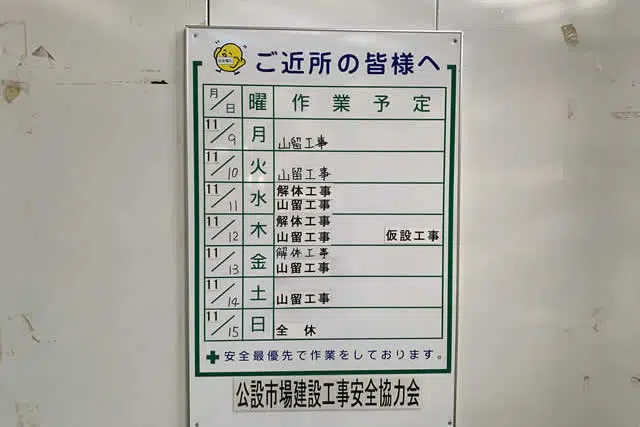 ご近所の皆様へ
月/日 曜 作業予定
11/9 月 山留工事
11/10 火 山留工事
11/11 水 解体工事
山留工事
11/12 木 解体工事
山留工事 仮設工事
11/13 金 解体工事
山留工事
11/14 土 山留工事
11/15 日 全休
安全最優先で作業をしております。
公設市場建設工事安全協力会